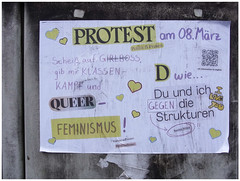 PROTEST am 08. März
Scheiß auf GIRLBOSS,
gib mir KLASSEN-
KAMPF und
QUEER-
FEMINISMUS!
D wie...
Du und ich
GEGEN die
Strukturen